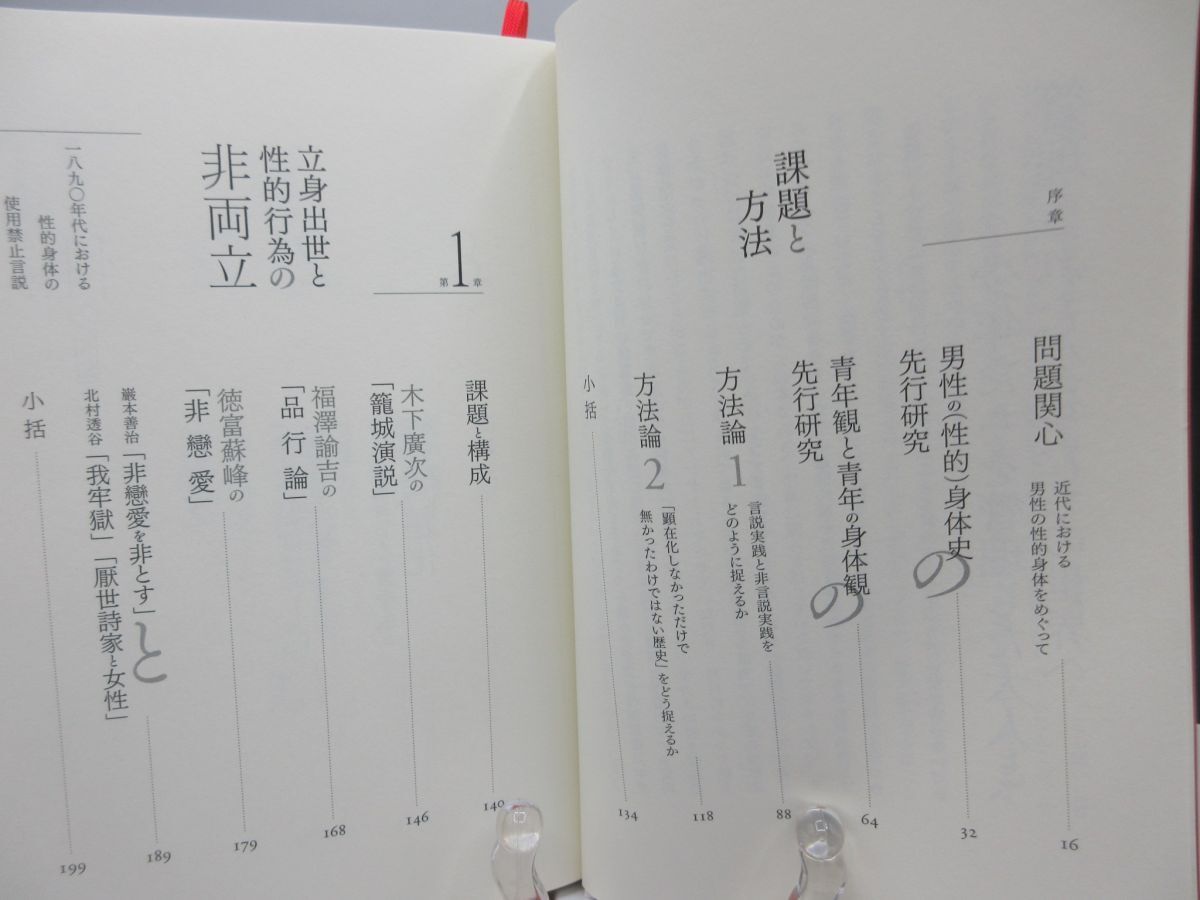 序章
課題と
方法
問題関心
近代における
男性の性的身体をめぐって
16
男性の(性的)身体史の
先行研究
32
青年観と青年の身体観の
先行研究
64
方法論1
言説実践と非言説実践を
どのように捉えるか
88
方法論2
「顕在化しなかっただけで
無かったわけではない歴史」をどう捉えるか
118
小括
134
第1章
立身出世と
性的行為の
非両立
一八九〇年代における
性的身体の
使用禁止言説
課題と構成
140
木下廣次の
「籠城演説」
146
福澤諭吉の
「品行論」
168
徳富蘇峰の
「非戀愛」
179
巌本善治「非戀愛を非とす」と
北村透谷「我牢獄」「厭世詩家と女性」
189
小括
199